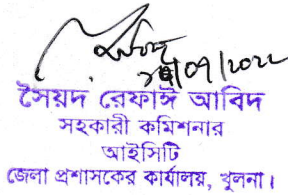 /07/2022
সৈয়দ রেফাঈ আবিদ
সহকারী কমিশনার
আইসিটি
জেলা প্রশাসকের কার্যালয়, খুলনা।